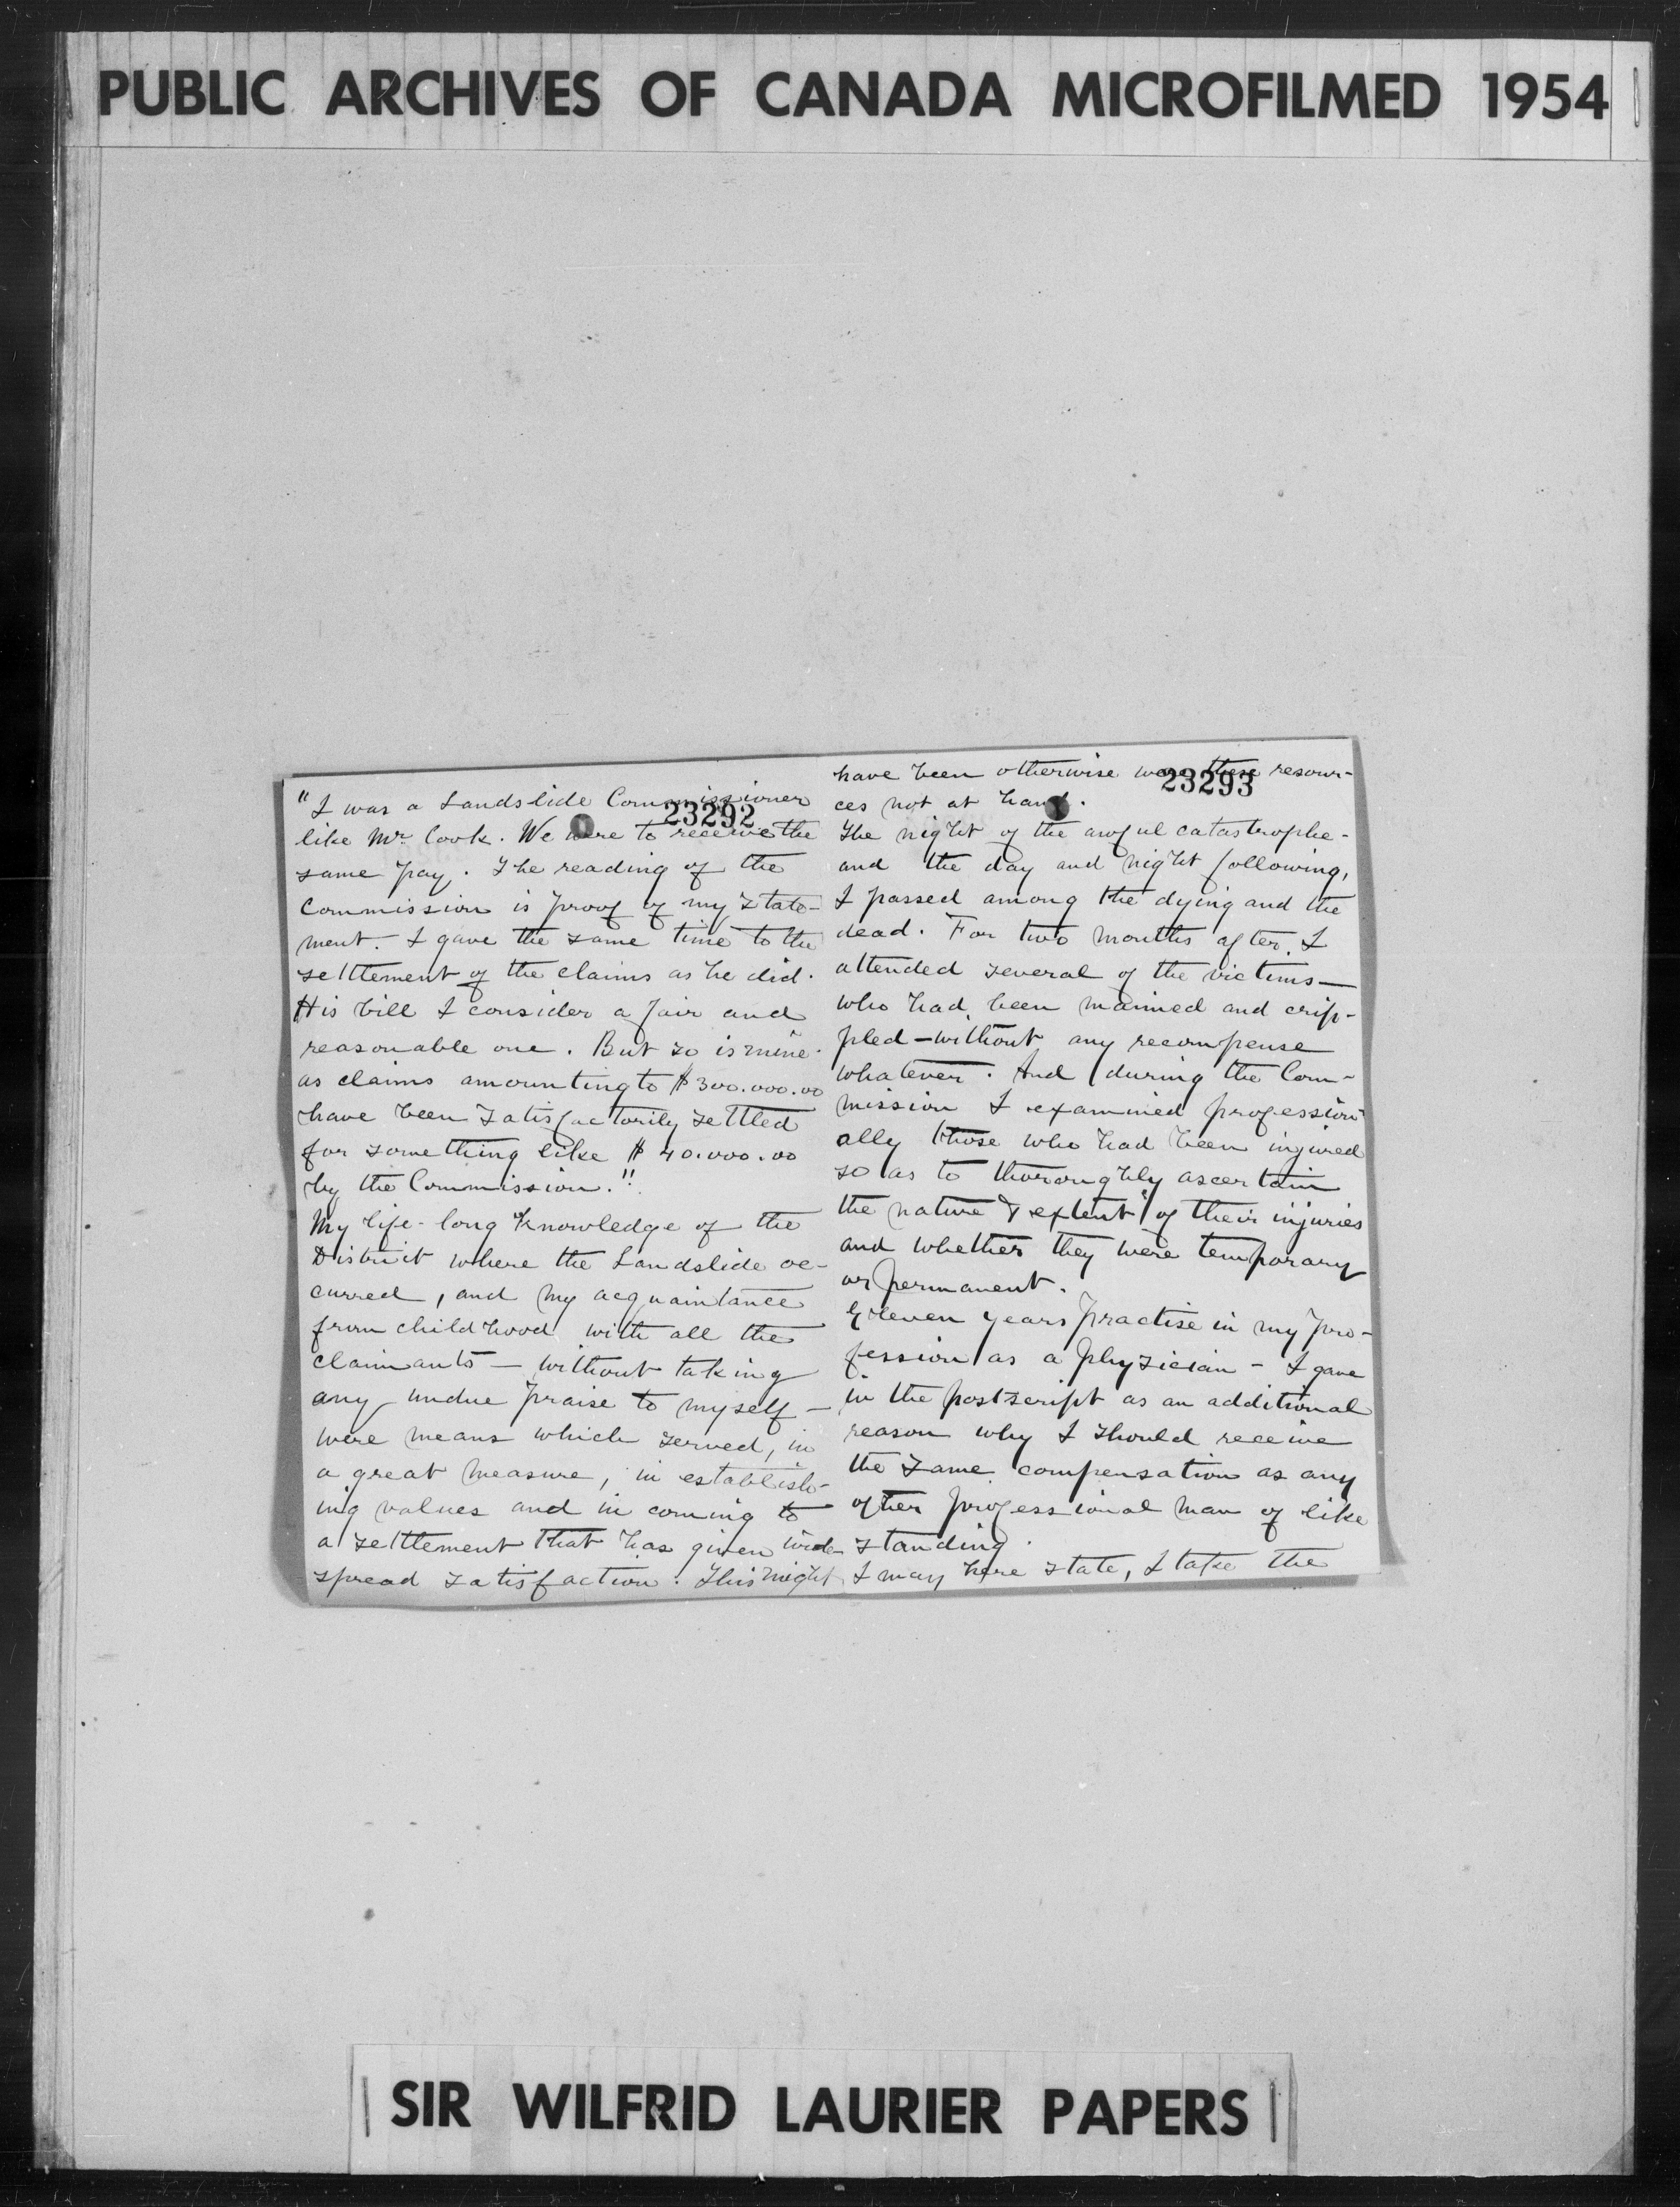 PUBLIC ARCHIVES OF CANADA MICROFILMED 1954
23292
"I was a Landslide Commissioner
like Mr. Cook. We were to receive the
same pay. The reading of the
Commission is proof of my state-
ment. I gave the same time to the
settlement of the claims as he did.
His bill I consider a fair and
reasonable one. But so is mine.
as claims amounting to $300.000.00
have been satisfactorily settled
for something like $40.000.00
by the Commission."
My life-long knowledge of the
District where the Landslide oc-
curred, and my acquaintance
from childhood with all the
claimants — without taking
any undue praise to myself —
were means which served, in
a great measure, in establish-
ing values and in coming to
a settlement that has given wide
spread satisfaction. This might
23293
have been otherwise were these resour-
ces not at hand.
The night of the awful catastrophe -
and the day and night following,
I passed among the dying and the
dead. For two months after, I
attended several of the victims —
who had been maimed and crip-
pled — without any recompense
whatever. And during the Com-
mission I examined profession-
ally those who had been injured
so as to thoroughly ascertain
the nature & extent of their injuries
and whether they were temporary
or permanent.
Eleven years practise in my pro-
fession as a physician - I gave
in the postscript as an additional
reason why I should receive
the same compensation as any
other professional man of like
standing.
I may here state, I take the
SIR WILFRID LAURIER PAPERS